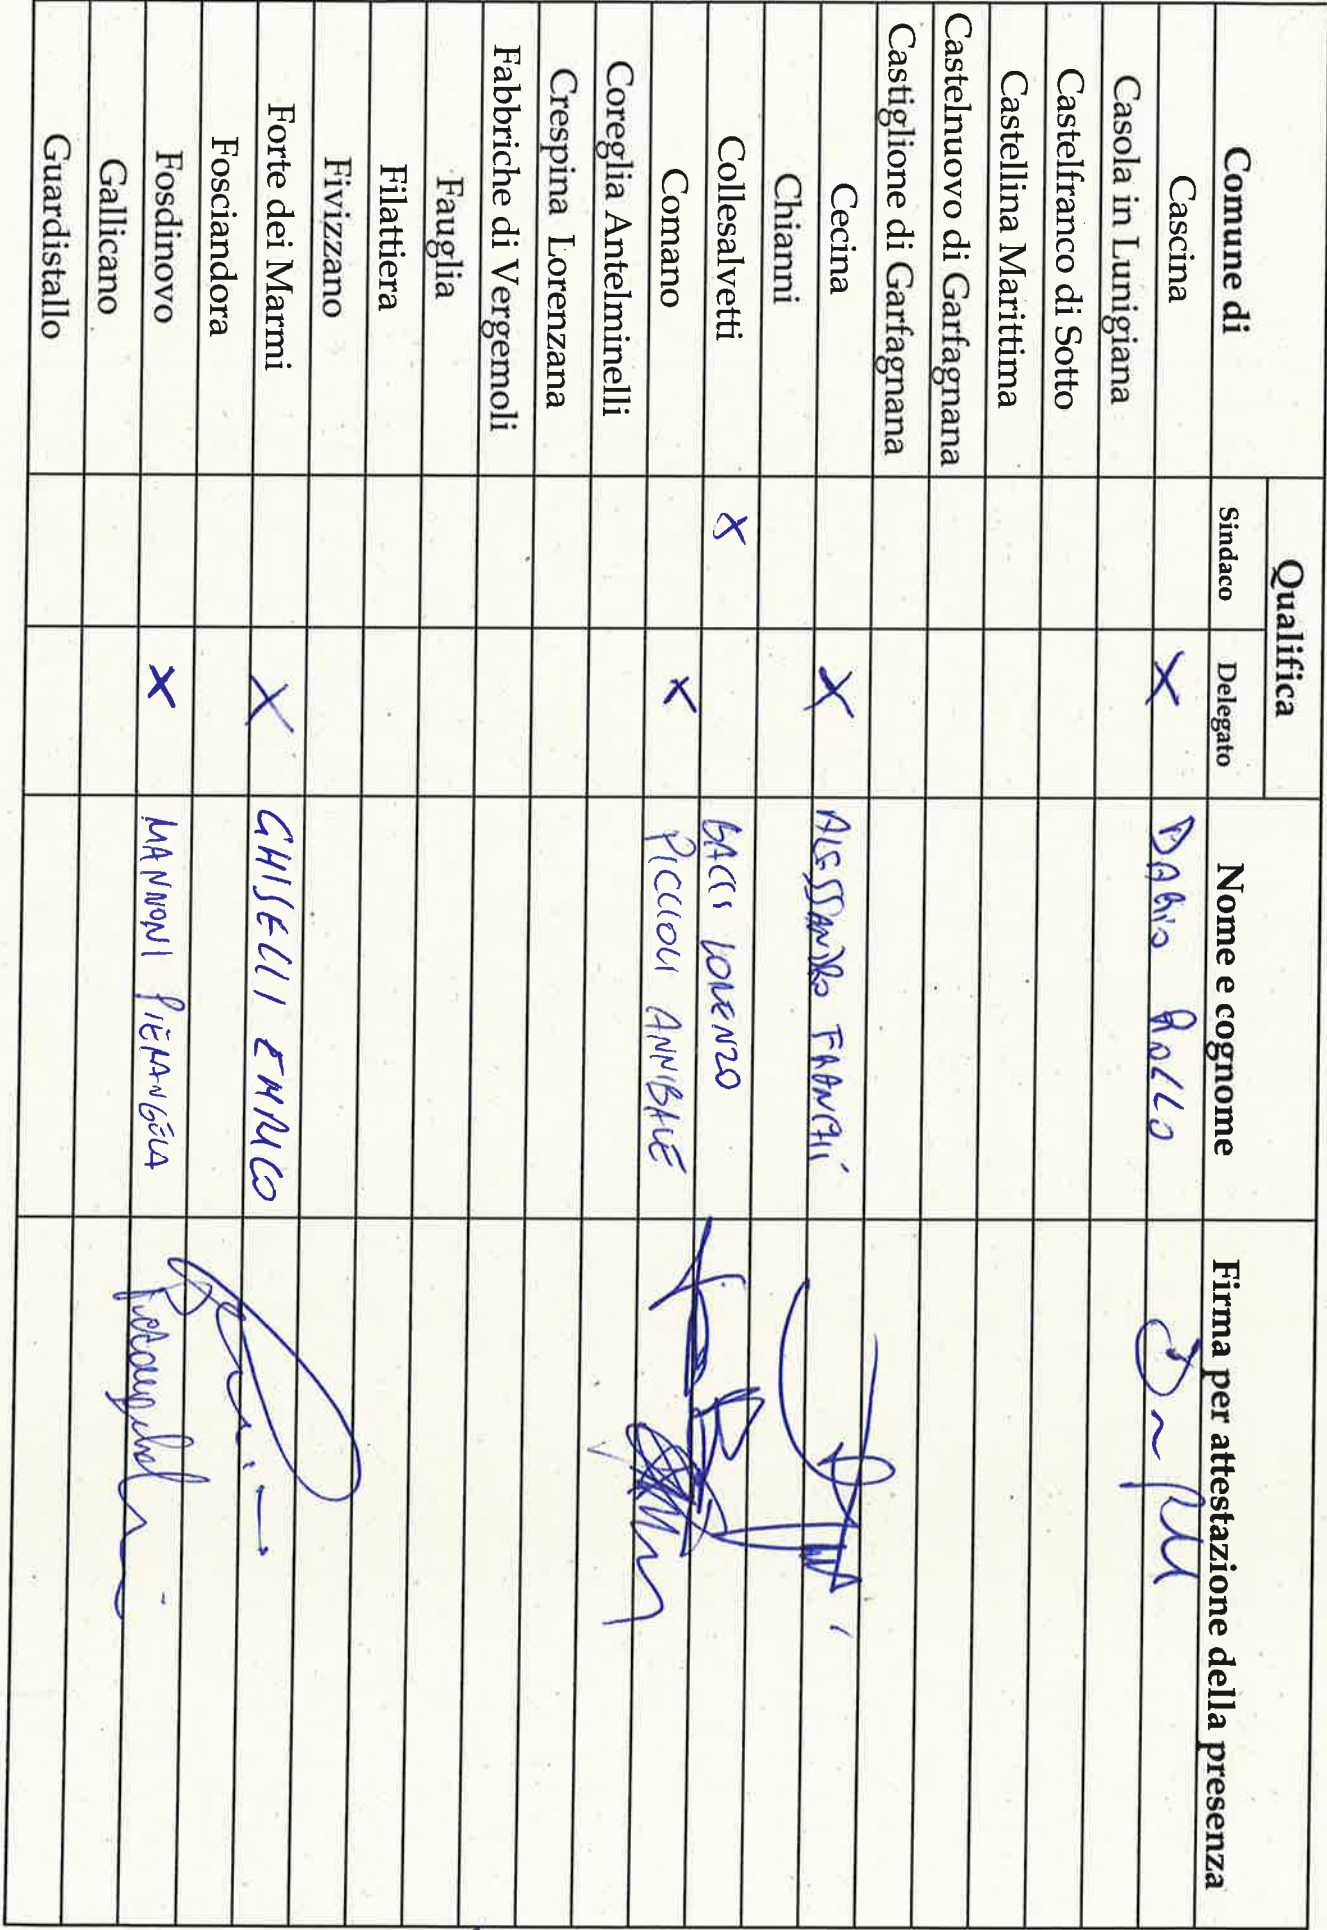 Qualifica
Comune di Sindaco Delegato Nome e cognome Firma per attestazione della presenza
Cascina X DARIO ROLLO
Casola in Lunigiana
Castelfranco di Sotto
Castellina Marittima
Castelnuovo di Garfagnana
Castiglione di Garfagnana
Cecina X ALESSANDRO FRANCHI
Chianni
Collesalvetti X BACCI LORENZO
Comano X PICCIOLI ANNIBALE
Coreglia Antelminelli
Crespina Lorenzana
Fabbriche di Vergemoli
Fauglia
Filattiera
Fivizzano
Forte dei Marmi X GHISELLI ENRICO
Fosciandora
Fosdinovo X MANNONI PIERANGELA
Gallicano
Guardistallo